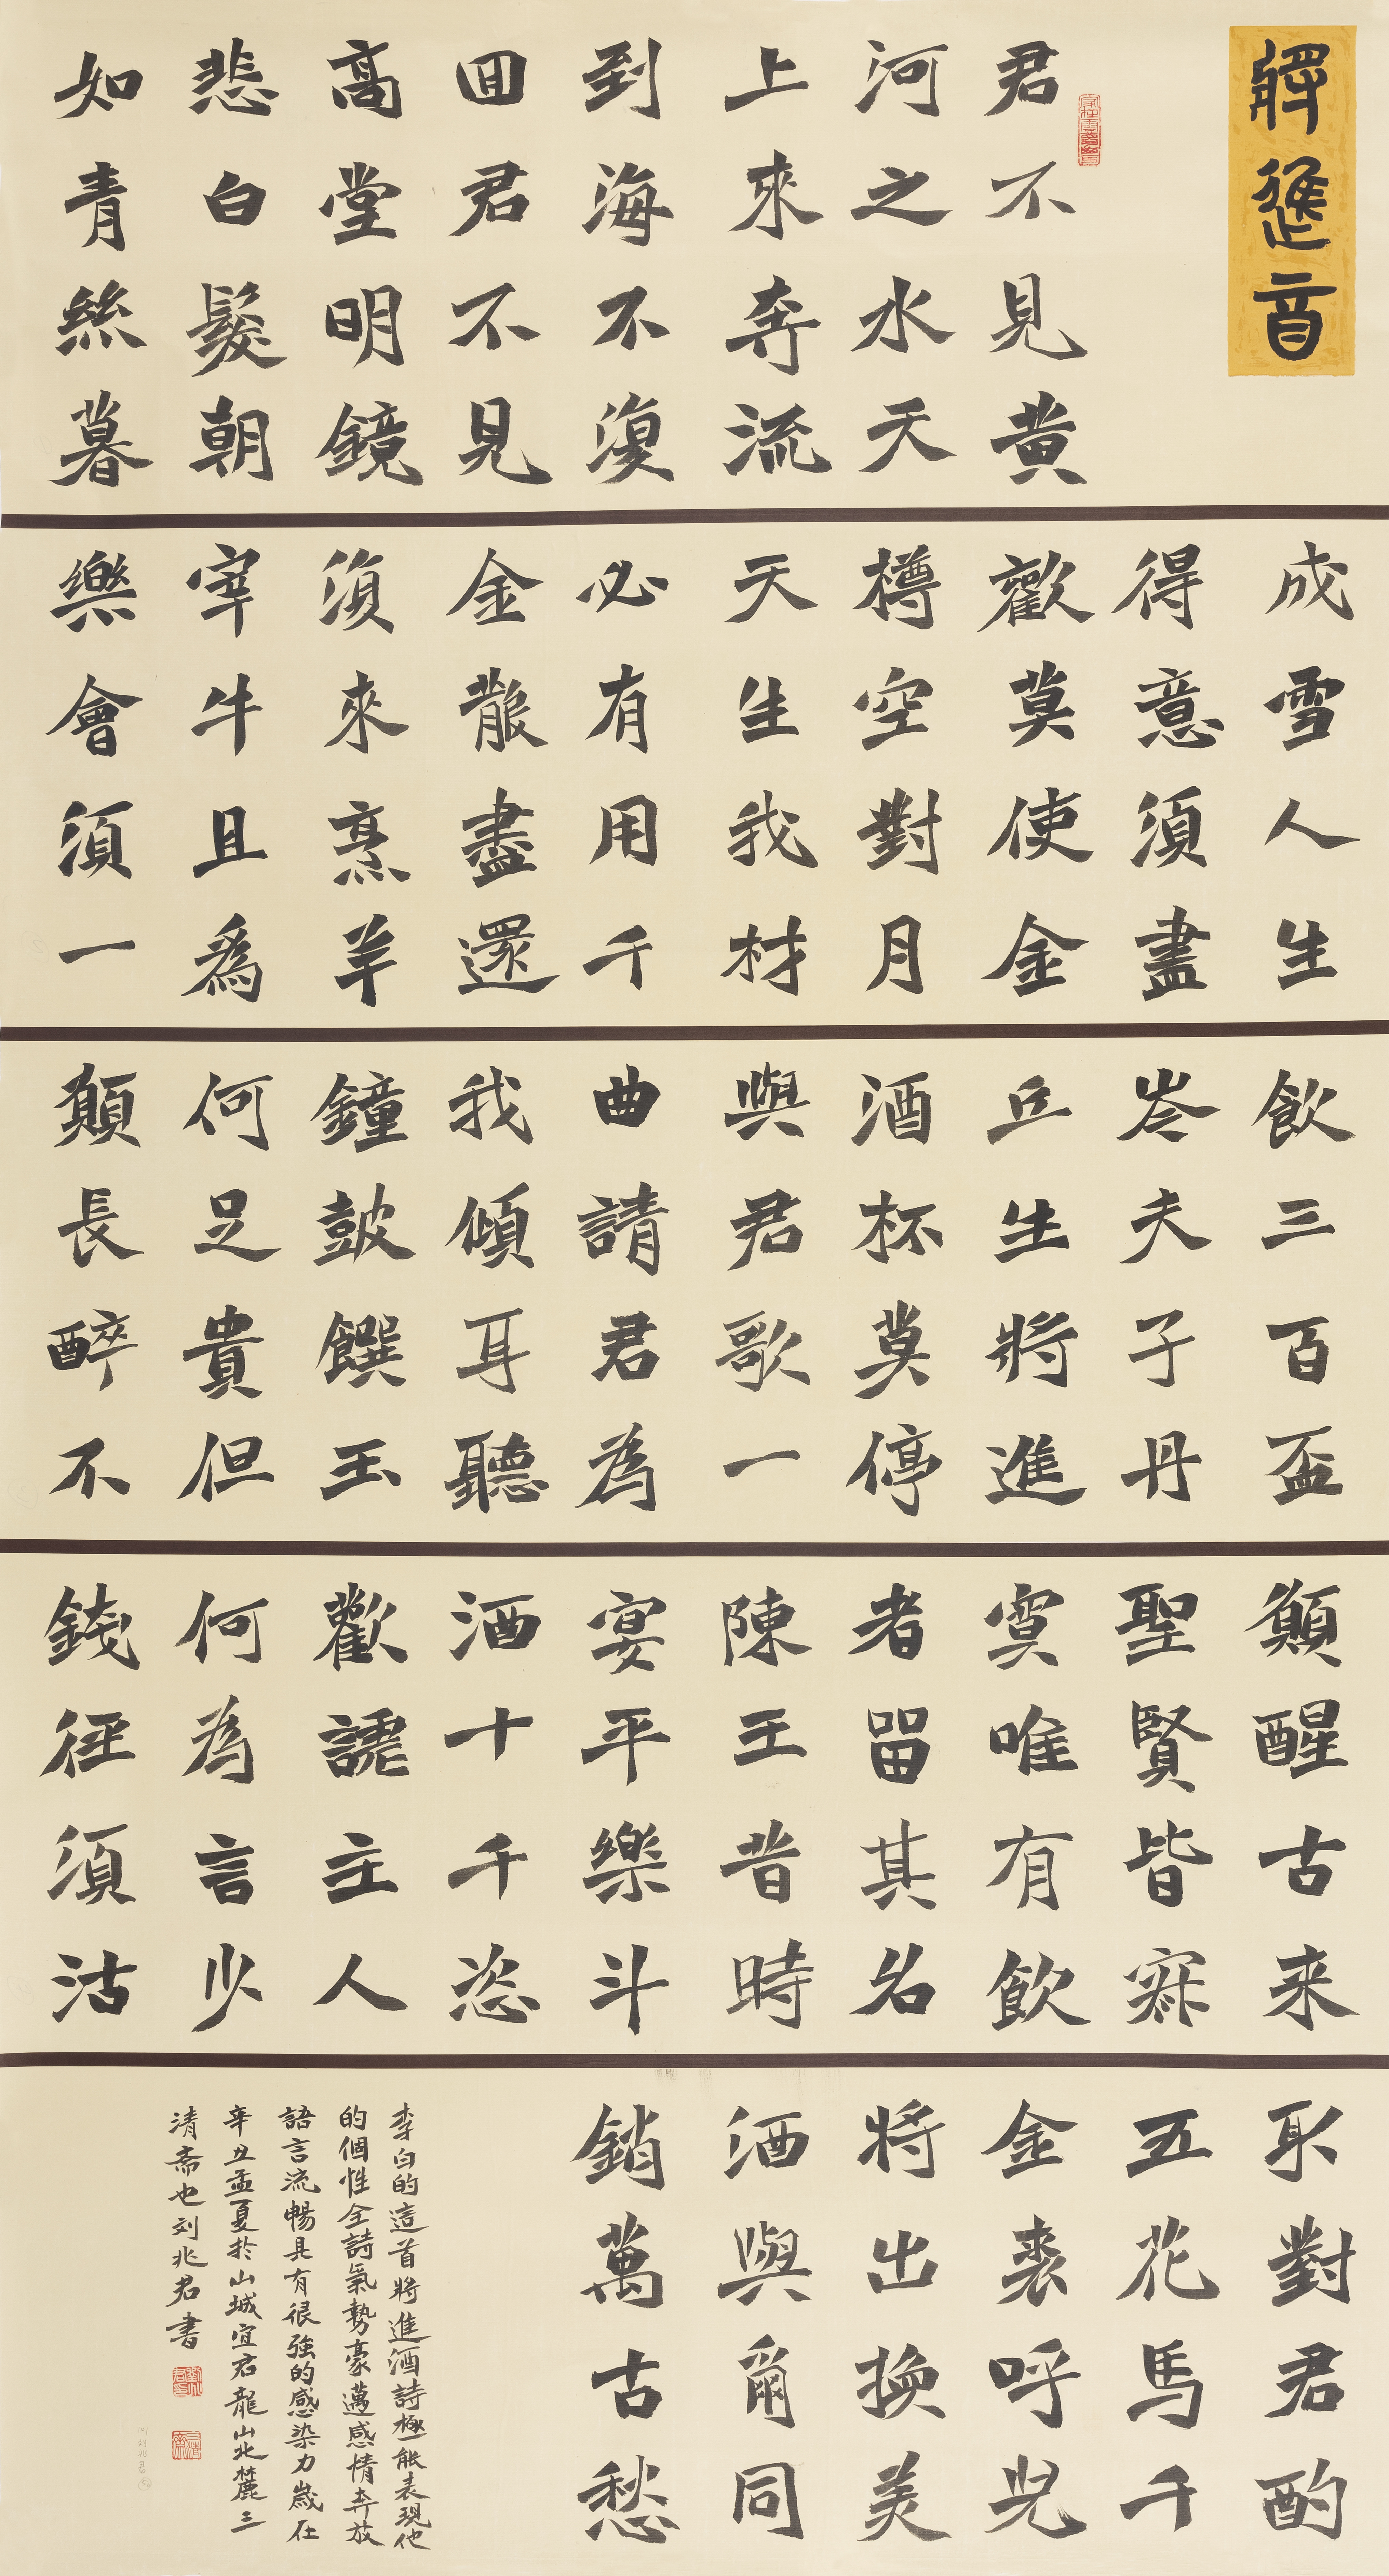 將進酉
君不見黄
河之水天
上來奔流
到海不復
回君不見
高堂明鏡
悲白髮朝
如青絲暮
成雪人生
得意須盡
歡莫使金
樽空對月
天生我材
必有用千
金散盡還
復來烹羊
宰牛且爲
樂會須一
飲三百盃
岑夫子丹
丘生將進
酒杯莫停
與君歌一
曲請君為
我傾耳聽
鐘鼓饌玉
何足貴但
願長醉不
願醒古来
聖賢皆寂
寞唯有飲
者留其名
陳王昔時
宴平樂斗
酒十千恣
歡謔主人
何為言少
錢徑須沽
取對君酌
五花馬千
金裘呼兒
將出換美
酒與爾同
銷萬古愁
李白的這首將進酒詩極能表現他
的個性全詩氣勢豪邁感情奔放
語言流暢具有很強的感染力歲在
辛丑孟夏於山城宜君龍山北麓三
清斋也刘兆君書